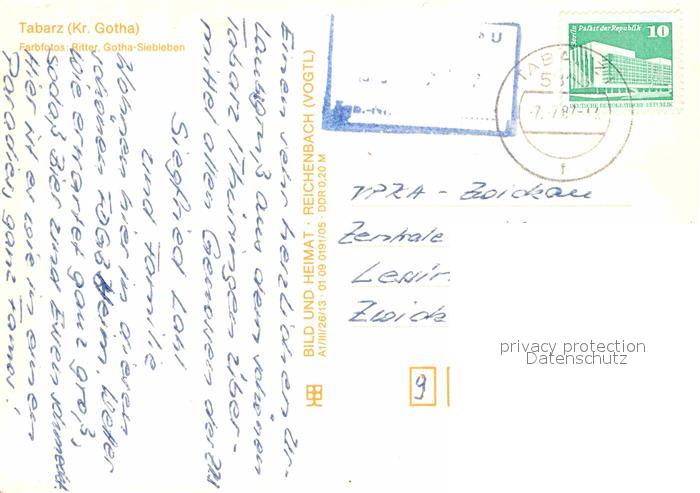 Tabarz (Kr. Gotha)
Farbfotos: Ritter, Gotha-Siebleben
Einen sehr herzlichen Ur-
laubsgruß aus dem schönen
Tabarz/Thüringen über-
mittel allen Genossen der
Siegfried
und Familie
Wohnen hier in diesem
schönen FDGB Heim. Wetter
wie erwartet ganz groß,
sodaß Bier und Essen schmeckt
Hier ist es wie in einem
Paradies, ganz famos!
BILD UND HEIMAT · REICHENBACH (VOGTL)
A1/III/26/13 · 01 09 0191/05 · DDR 0,20 M
Berlin Palast der Republik
10
DEUTSCHE DEMOKRATISCHE REPUBLIK
TABARZ
VPKA - Zwickau
Zentrale
Zwick
9
privacy protection
Datenschutz